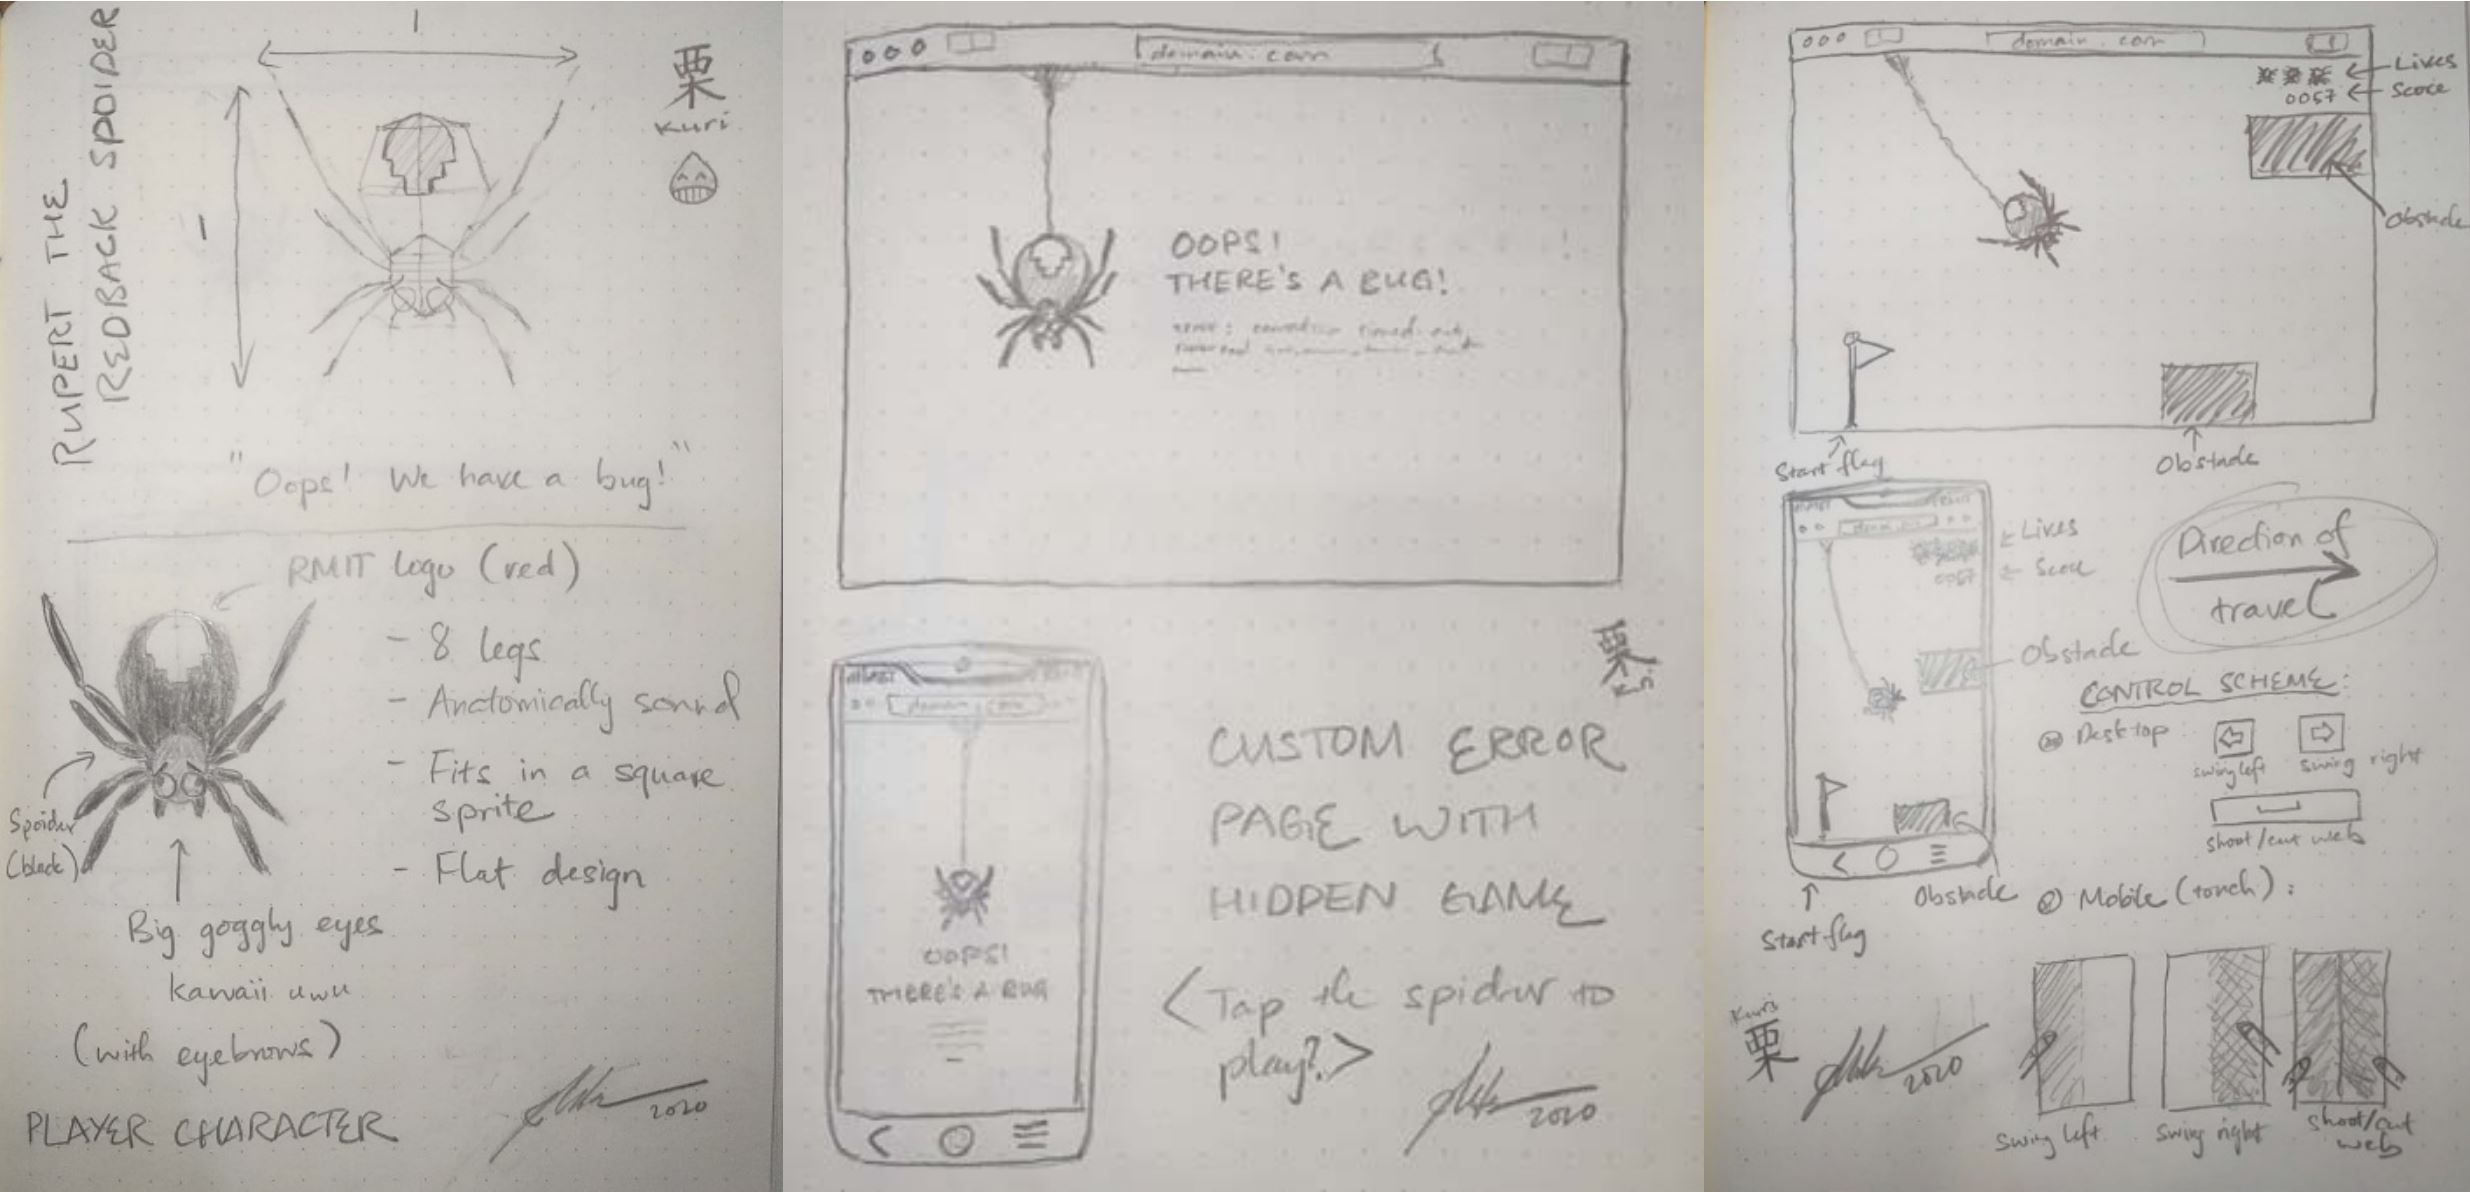 RUPERT THE
REDBACK SPOIDER
1
1
栗
Kuri
"Oops! We have a bug!"
RMIT logo (red)
- 8 legs
- Anatomically sound
- Fits in a square
sprite
- Flat design
Spoider
(black)
Big goggly eyes
kawaii uwu
(with eyebrows)
PLAYER CHARACTER
2020
domain.com
OOPS!
THERE'S A BUG!
error: connection timed out,
domain
OOPS!
THERE'S A BUG
栗
CUSTOM ERROR
PAGE WITH
HIDDEN GAME
<Tap the spider to
play?>
2020
domain.com
Lives
0057
Score
Obstacle
Start flag
Obstacle
Lives
0057
Score
Direction of
travel
Obstacle
CONTROL SCHEME:
Desktop
swing left
swing right
shoot/cut web
Obstacle
Start flag
Mobile (touch):
Kuri
栗
2020
Swing left
Swing right
Shoot/cut
web